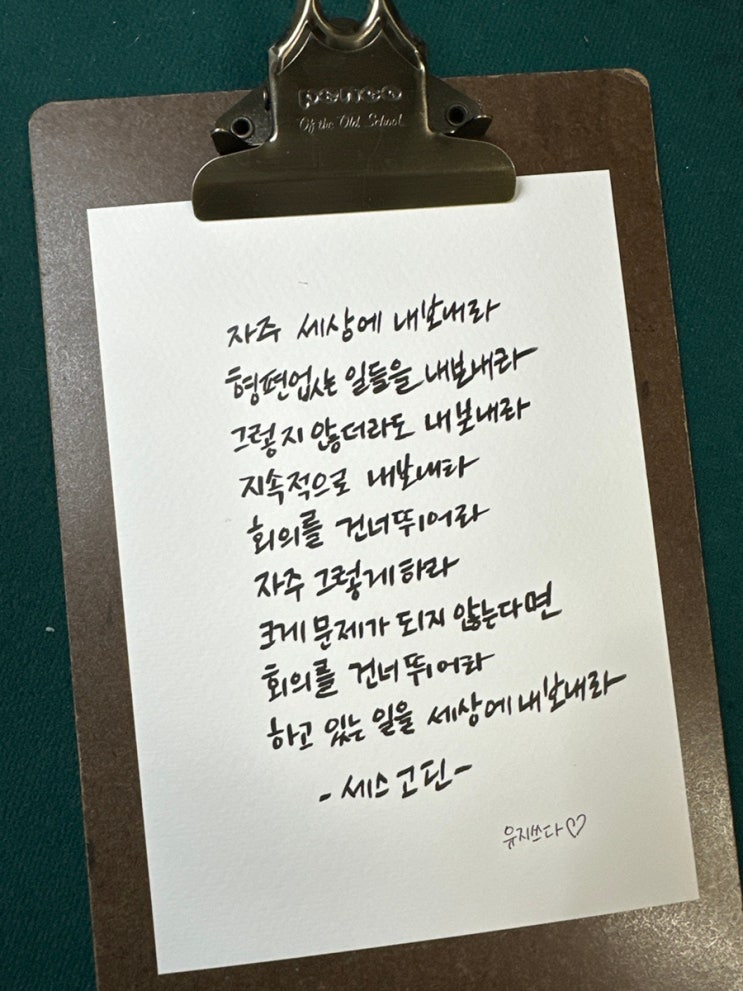 penco
Of the Old School
자주 세상에 내보내라
형편없는 일들을 내보내라
그렇지 않더라도 내보내라
지속적으로 내보내라
회의를 건너뛰어라
자주 그렇게 하라
크게 문제가 되지 않는다면
회의를 건너뛰어라
하고 있는 일을 세상에 내보내라
- 세스 고딘 -
유지쓰다♡